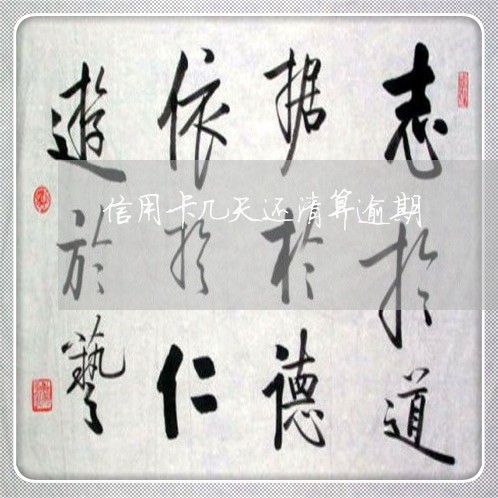 志於道
据於德
依於仁
遊於藝
信用卡几天还清算逾期